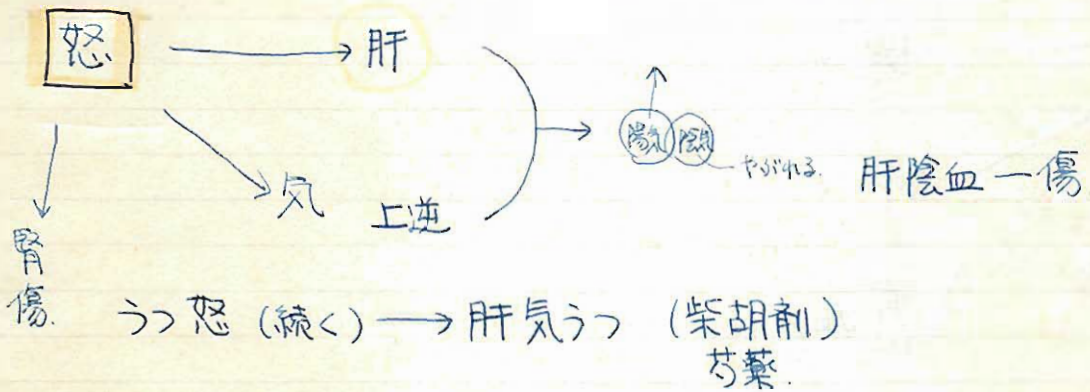 怒 → 肝
→ 気 上逆
→ 陽気 陰気 やぶれる. 肝陰血ー傷
腎傷.
うつ怒 (続く) → 肝気うつ (柴胡剤)
芍薬.